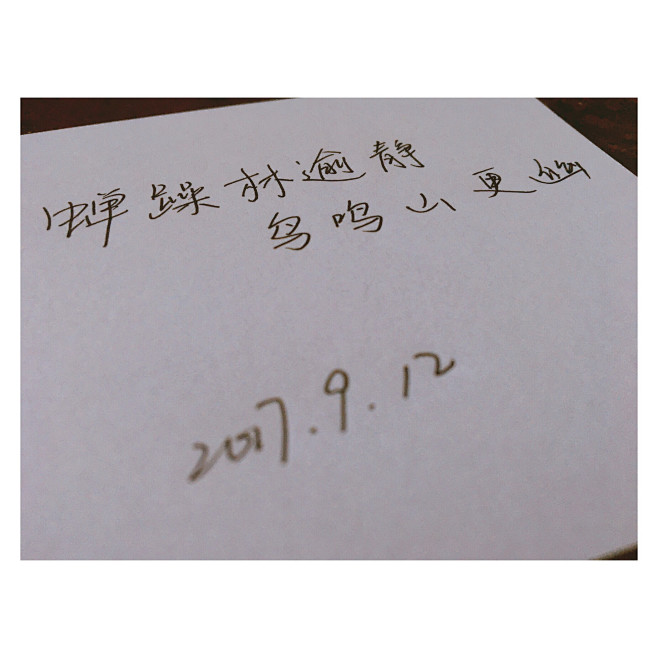 蝉躁林逾静
鸟鸣山更幽
2017.9.12